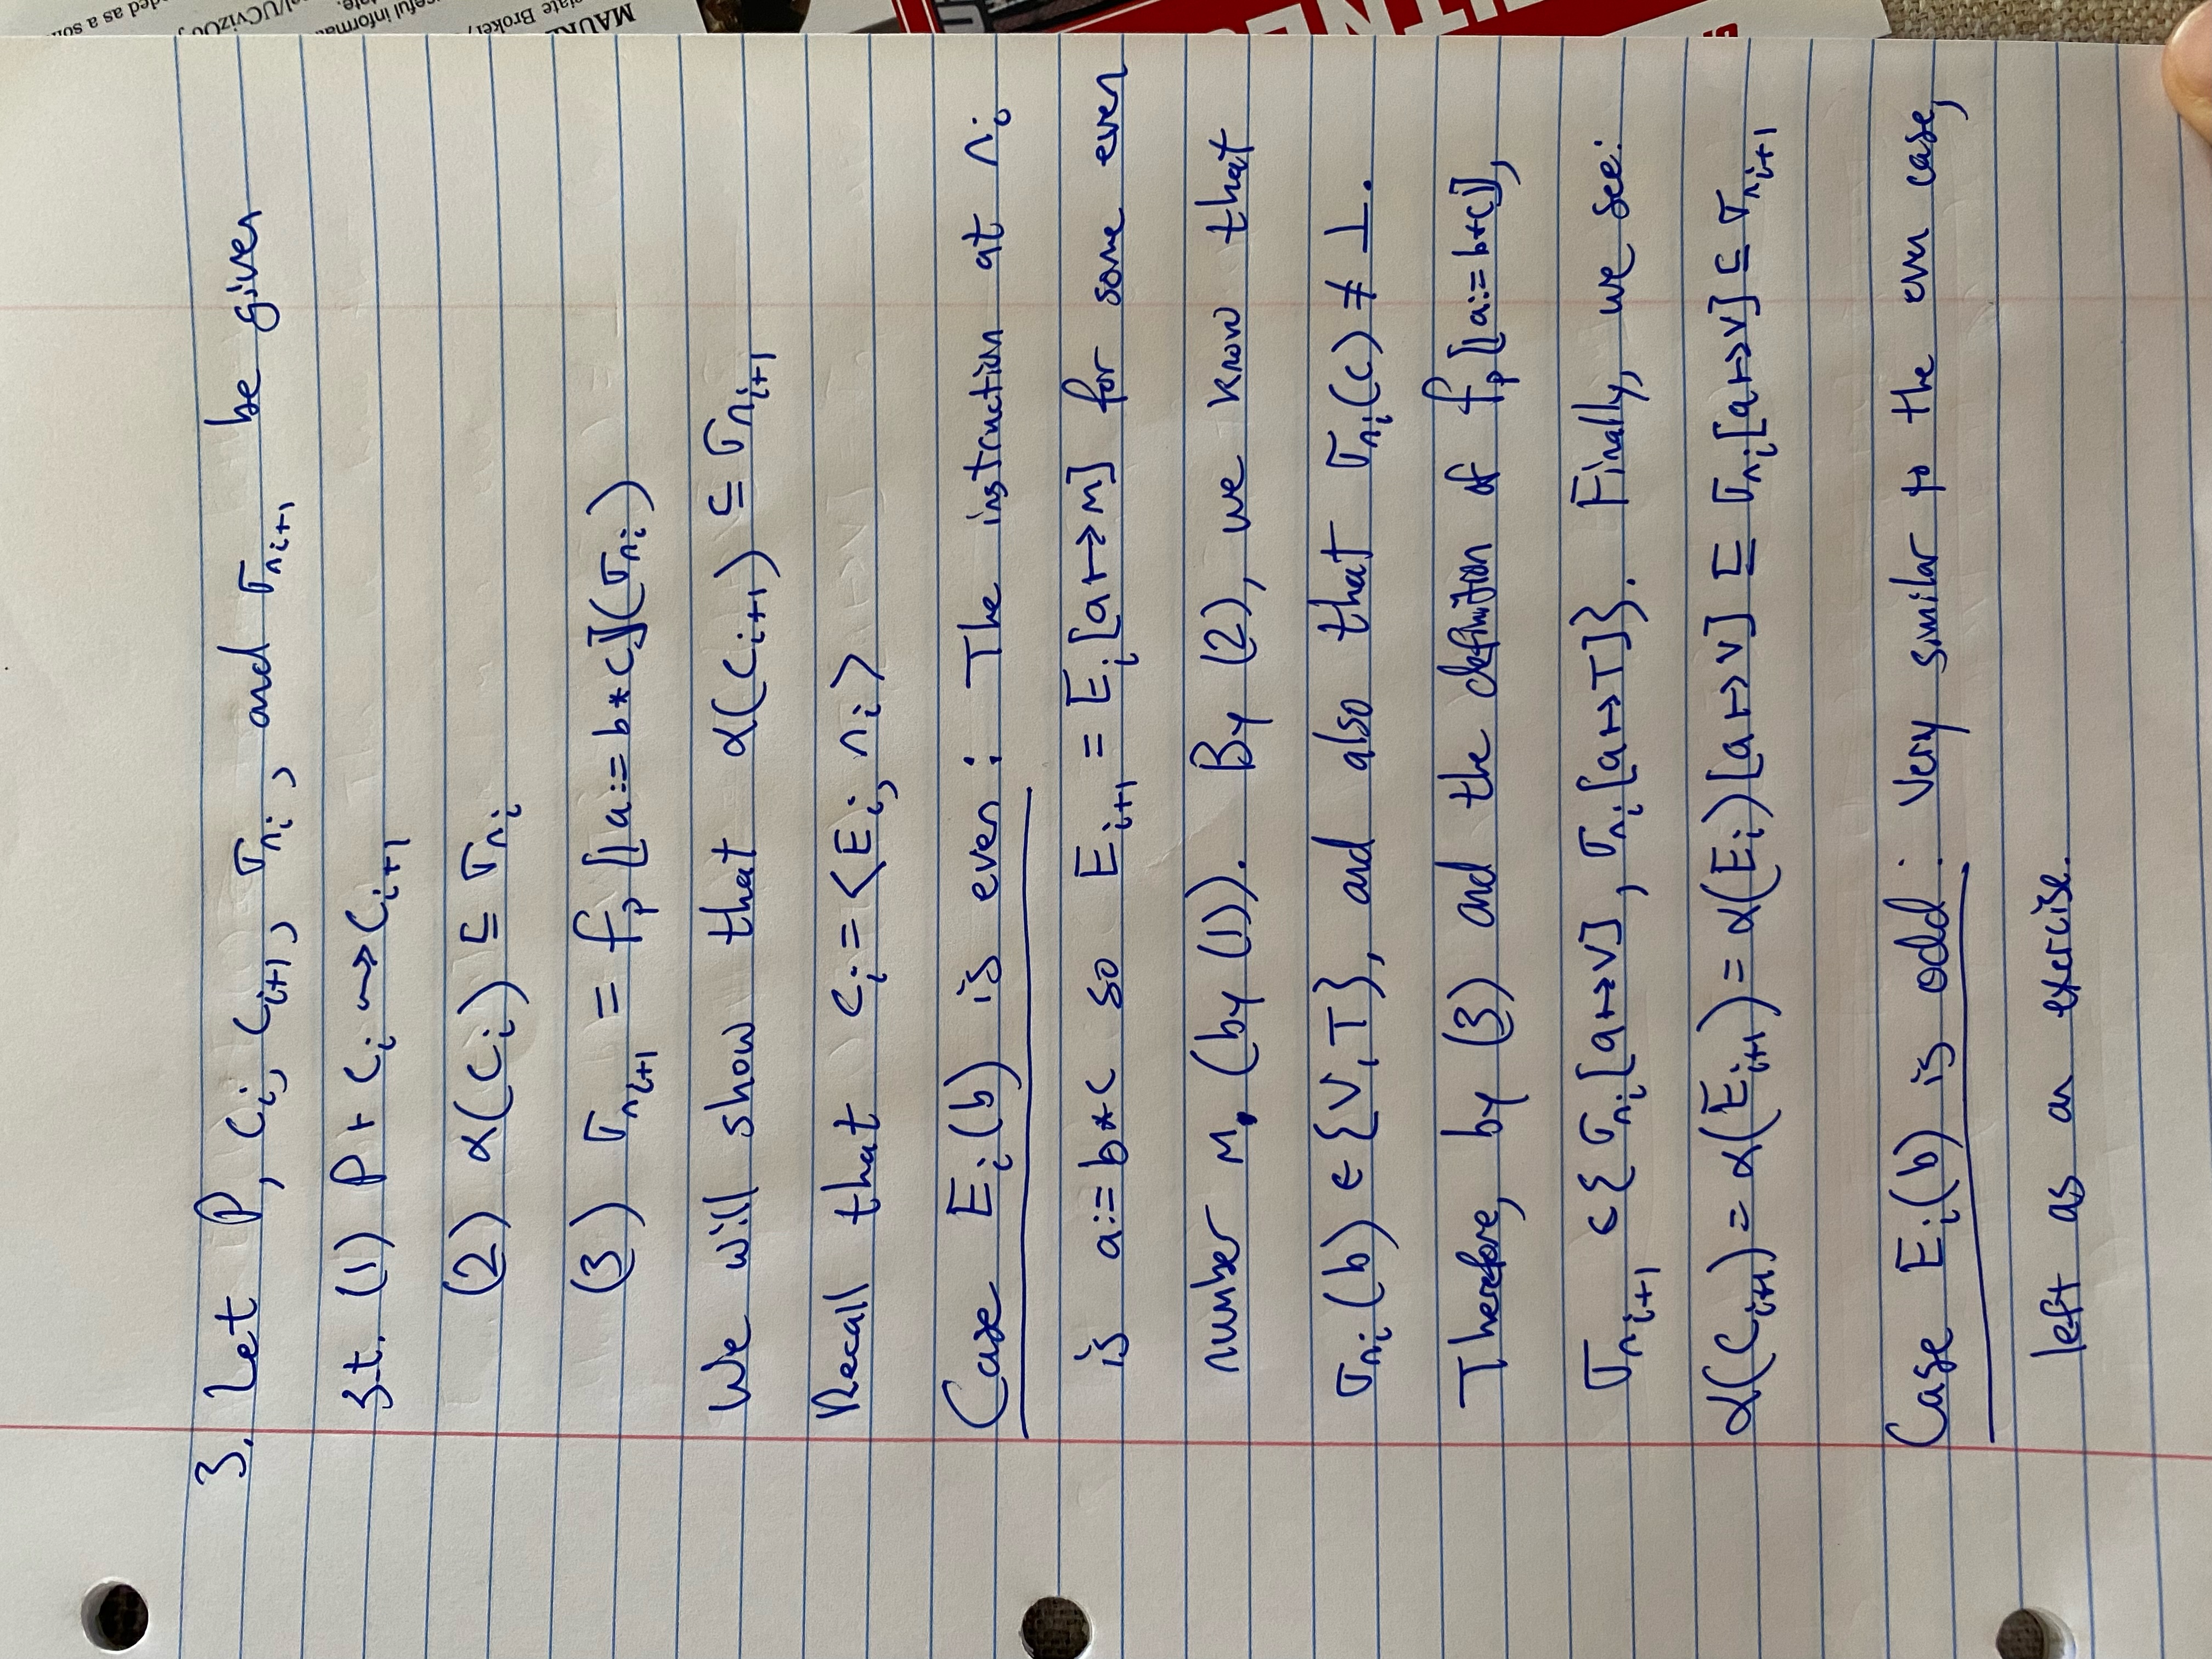 3. Let P, Cᵢ, Cᵢ₊₁, σₙᵢ, and σₙᵢ₊₁ be given
s.t. (1) P ⊢ Cᵢ ⇝ Cᵢ₊₁
(2) α(Cᵢ) ⊑ σₙᵢ
(3) σₙᵢ₊₁ = fₚ⟦a := b * c⟧(σₙᵢ)
We will show that α(Cᵢ₊₁) ⊑ σₙᵢ₊₁
Recall that Cᵢ = <Eᵢ, nᵢ>
Case Eᵢ(b) is even: The instruction at nᵢ
is a := b * c so Eᵢ₊₁ = Eᵢ[a ↦ m] for some even
number m. (by (1)). By (2), we know that
σₙᵢ(b) ∈ {V, T}, and also that σₙᵢ(c) ≠ ⊥.
Therefore, by (3) and the definition of fₚ⟦a := b * c⟧,
σₙᵢ₊₁ ∈ {σₙᵢ[a ↦ V], σₙᵢ[a ↦ T]}. Finally, we see:
α(Cᵢ₊₁) = α(Eᵢ₊₁) = α(Eᵢ)[a ↦ V] ⊑ σₙᵢ[a ↦ V] ⊑ σₙᵢ₊₁
Case Eᵢ(b) is odd: Very similar to the even case,
left as an exercise.